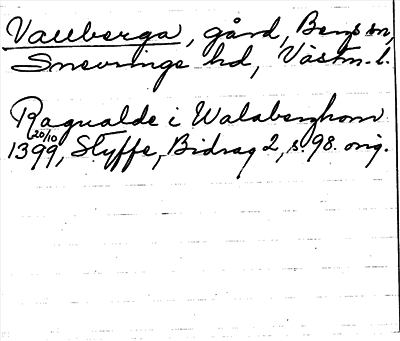 Vallberga, gård, Bergs sn,
Snevringe hd, Västm. l.
Ragualde i Walaberghom
20/10
1399, Styffe, Bidrag 2, s. 98. orig.